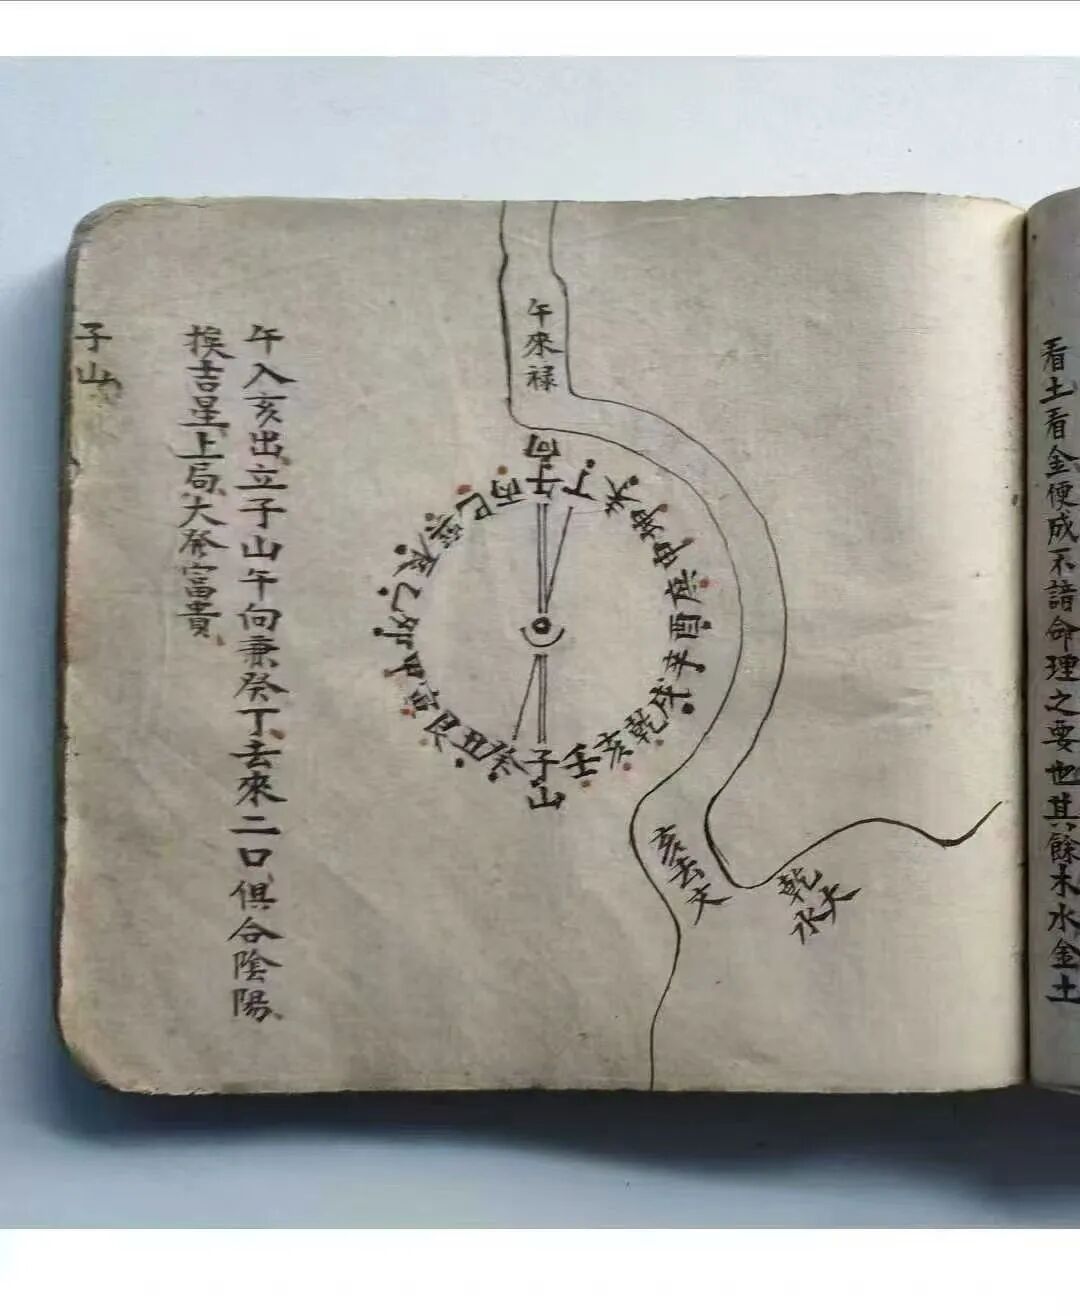 看土看金便成不諳命理之要也其餘木水金土
午來禄
向
午丁未坤申庚酉辛戌乾亥壬子癸丑艮寅甲卯乙辰巽巳丙
山
亥去文
乾水
午入亥出立子山午向兼癸丁去來二口俱合陰陽、
挨吉星上局大發富貴、
子山